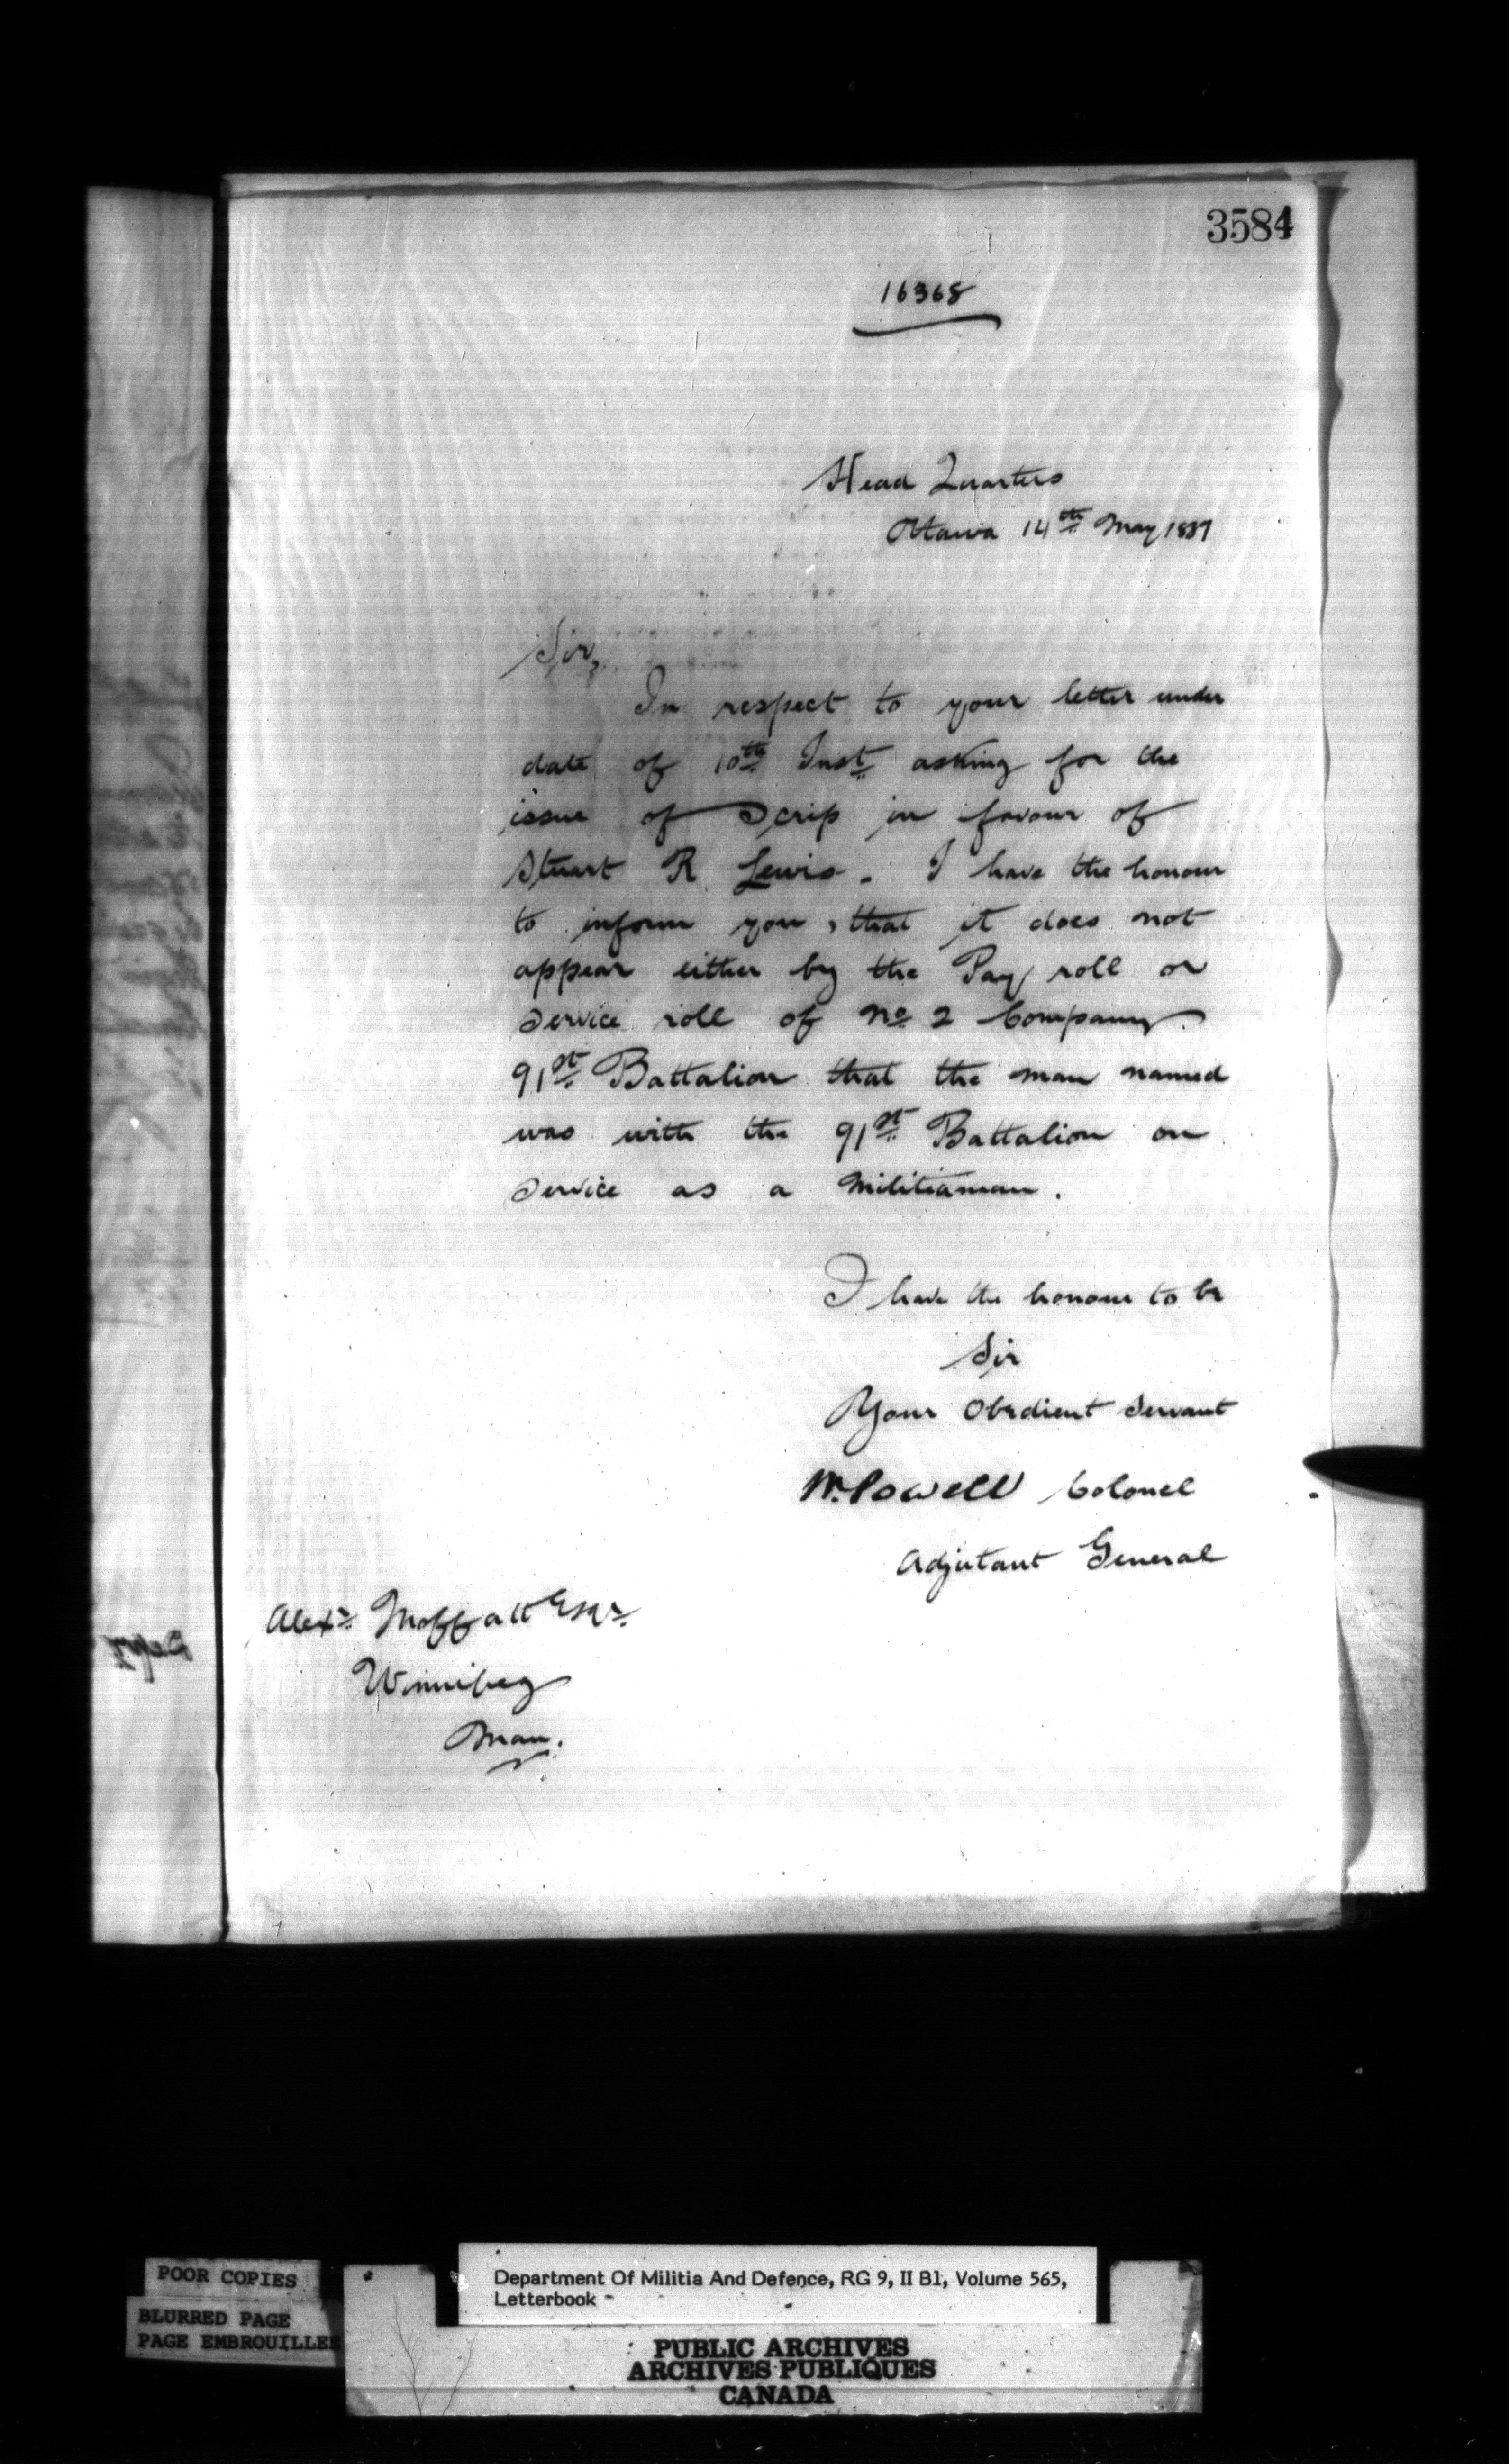 3584
16368
Head Quarters
Ottawa 14th May 1887
Sir,
In respect to your letter under
date of 10th Inst asking for the
issue of Scrip in favour of
Stuart R Lewis. I have the honour
to inform you, that it does not
appear either by the Pay roll or
Service roll of No 2 Company
91st Battalion that the man named
was with the 91st Battalion on
Service as a Militiaman.
I have the honour to be
Sir
Your Obedient Servant
W. Powell Colonel
Adjutant General
Alexr Moffatt Esqr.
Winnipeg
Man.
POOR COPIES
BLURRED PAGE
PAGE EMBROUILLEE
Department Of Militia And Defence, RG 9, II B1, Volume 565,
Letterbook -
PUBLIC ARCHIVES
ARCHIVES PUBLIQUES
CANADA